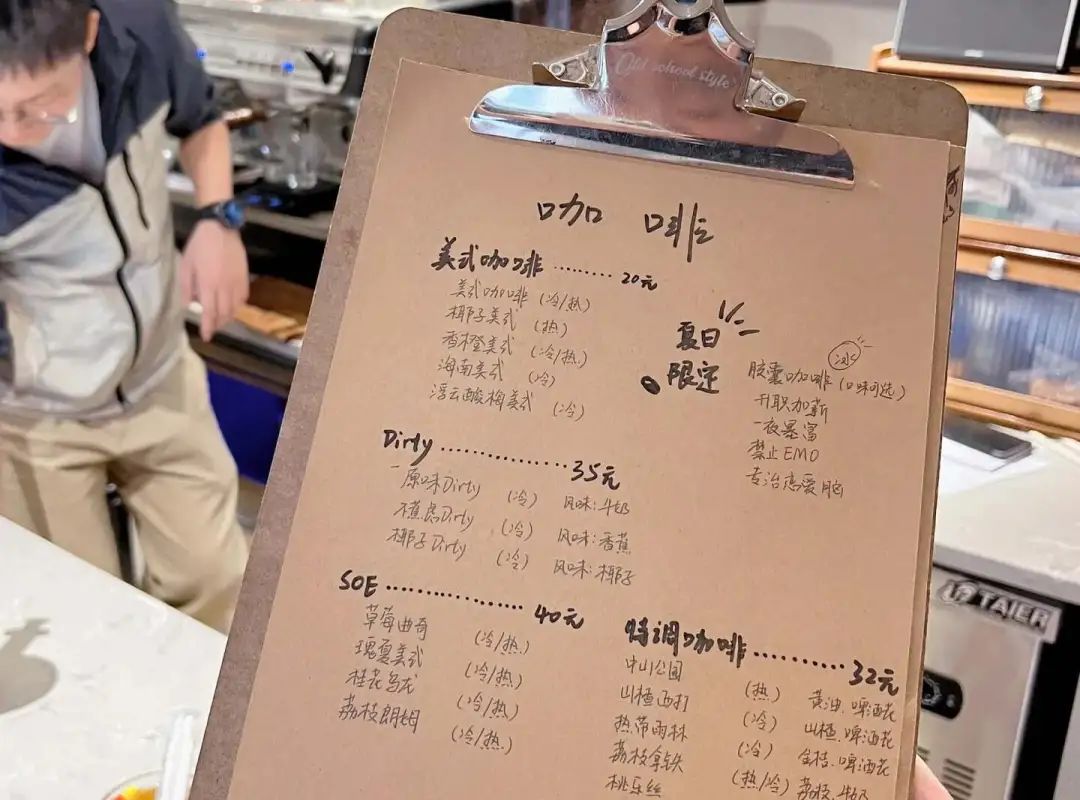 Old school style
咖 啡
美式咖啡 ········ 20元
美式咖啡 (冷/热)
椰子美式 (热)
香橙美式 (冷/热)
海南美式 (冷)
浮云酸梅美式 (冷)
夏日
限定
冰
胶囊咖啡 (口味可选)
升职加薪
一夜暴富
禁止EMO
专治恋爱脑
Dirty ·············· 35元
原味Dirty (冷) 风味:牛奶
蕉虑Dirty (冷) 风味:香蕉
椰子Dirty (冷) 风味:椰子
SOE ················ 40元
草莓曲奇 (冷/热)
瑰夏美式 (冷/热)
桂花乌龙 (冷/热)
荔枝朗姆 (冷/热)
特调咖啡 ··········· 32元
中山公园 (热) 黄油、啤酒花
山楂西打 (冷) 山楂、啤酒花
热带雨林 (冷) 金桔、啤酒花
荔枝拿铁 (热/冷) 荔枝、牛奶
桃乐丝
TAIER